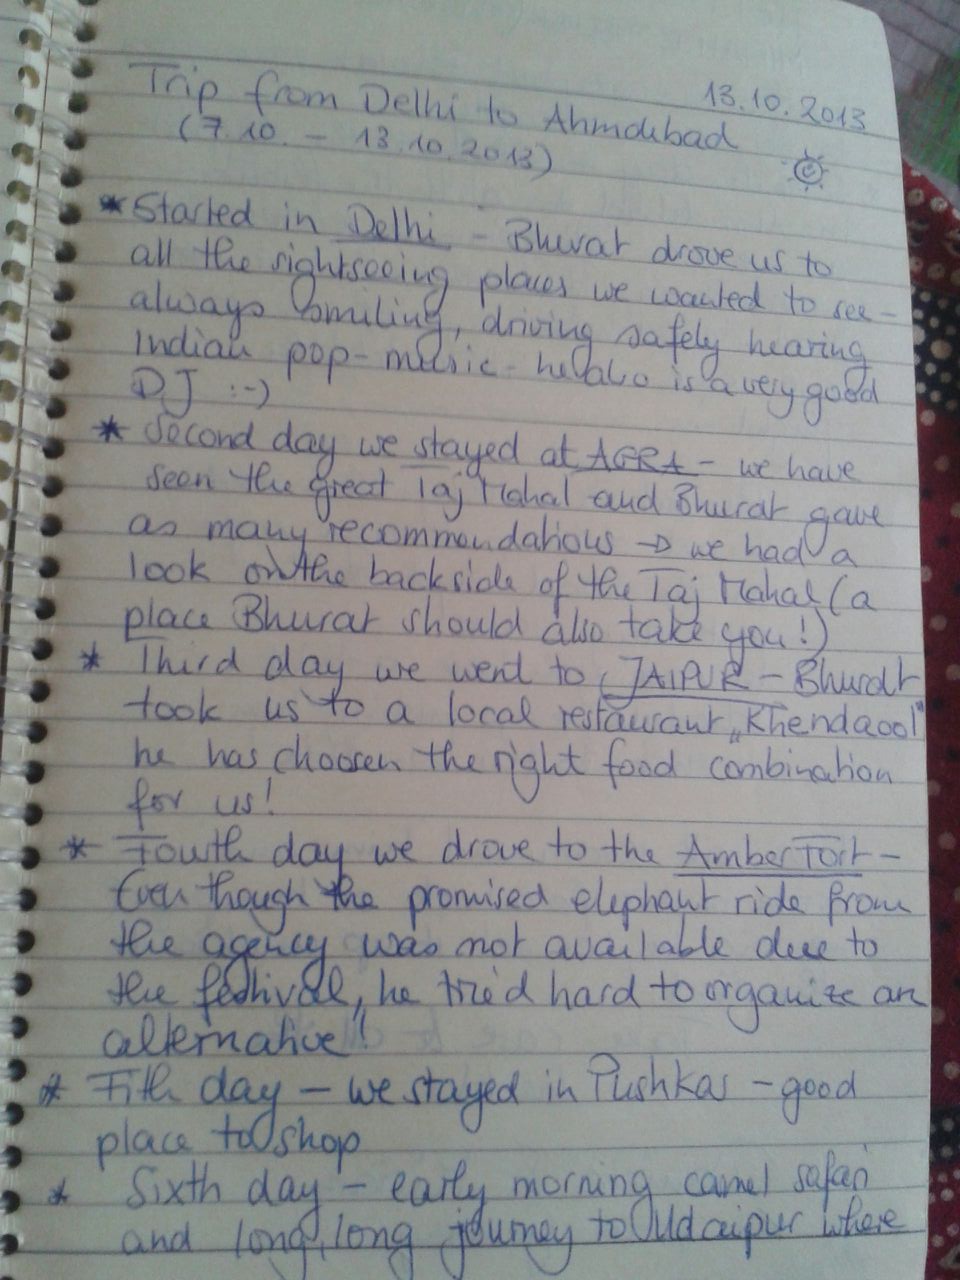 13.10.2013
Trip from Delhi to Ahmdebad
(7.10. - 13.10.2013)
* Started in Delhi - Bhurat drove us to
all the sightseeing places we wanted to see -
always smiling, driving safely hearing
Indian pop-music - he also is a very good
DJ :-)
* Second day we stayed at AGRA - we have
seen the great Taj Mahal and Bhurat gave
as many recommendations → we had a
look on the backside of the Taj Mahal (a
place Bhurat should also take you!)
* Third day we went to JAIPUR - Bhurat
took us to a local restaurant „Khendaool"
he has choosen the right food combination
for us!
* Fourth day we drove to the Amber Fort -
Even though the promised elephant ride from
the agency was not available due to
the feshival, he tried hard to organize an
alternative!!
* Fith day - we stayed in Pushkar - good
place to shop
* Sixth day - early morning camel safari
and long, long journey to Udaipur where